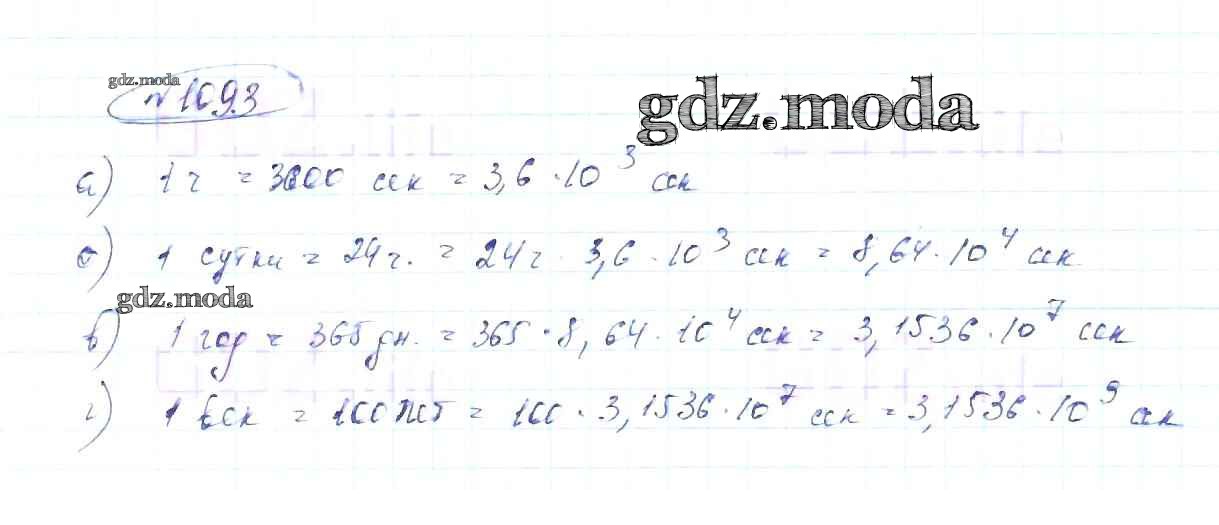 gdz.moda
№1093
gdz.moda
а) 1 ч = 3600 сек = 3,6 · 10³ сек
б) 1 сутки = 24 ч. = 24 ч · 3,6 · 10³ сек = 8,64 · 10⁴ сек
gdz.moda
в) 1 год = 365 дн. = 365 · 8,64 · 10⁴ сек = 3,1536 · 10⁷ сек
г) 1 век = 100 лет = 100 · 3,1536 · 10⁷ сек = 3,1536 · 10⁹ сек